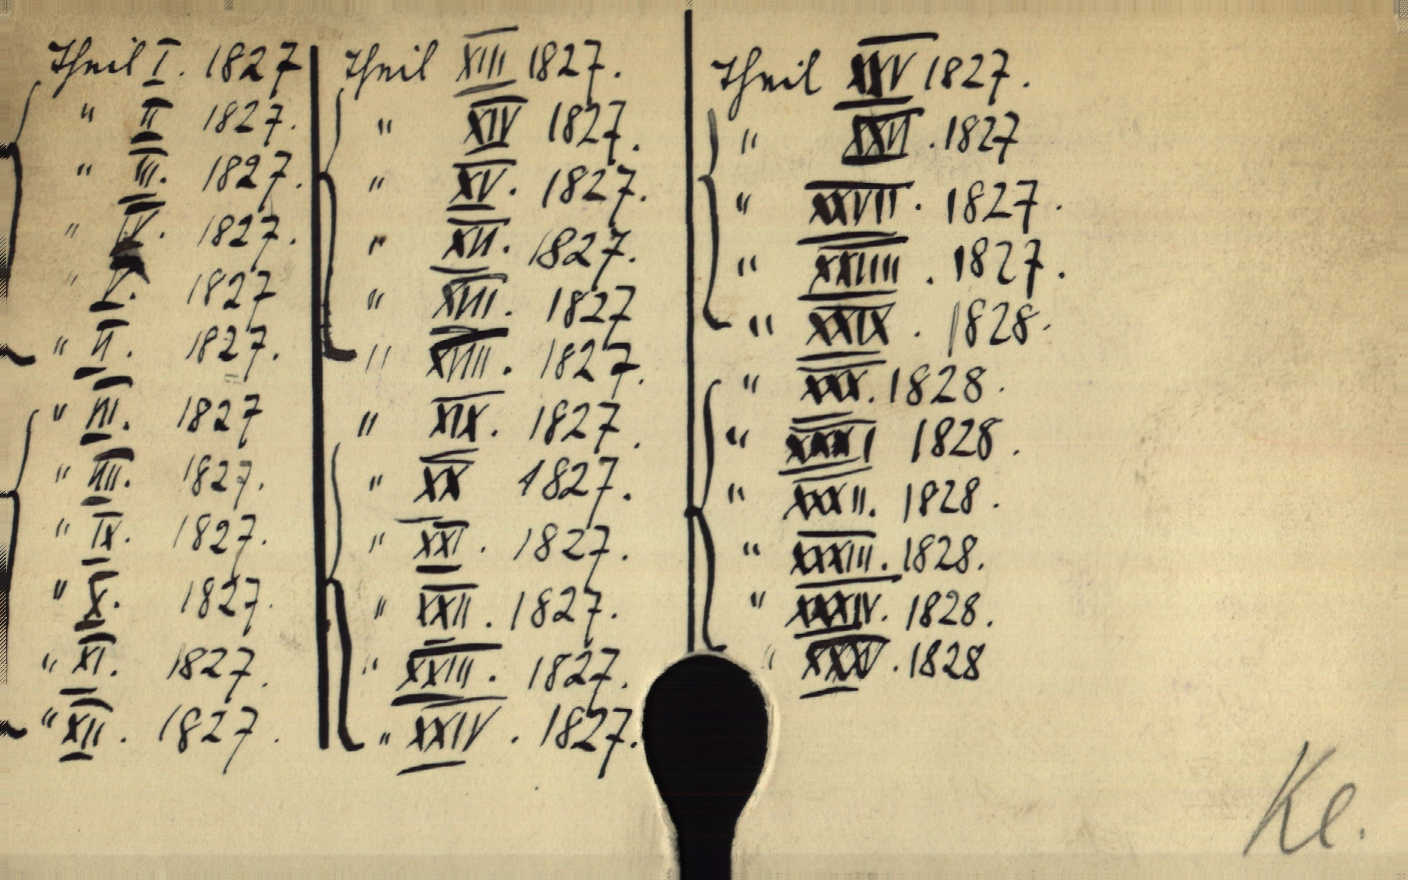 Theil I. 1827
" II 1827.
" III. 1827.
" IV. 1827.
" V. 1827
" VI. 1827.
" VII. 1827
" VIII. 1827.
" IX. 1827.
" X. 1827.
" XI. 1827.
" XII. 1827.
Theil XIII 1827.
" XIV 1827.
" XV. 1827.
" XVI. 1827.
" XVII. 1827
" XVIII. 1827.
" XIX. 1827.
" XX 1827.
" XXI. 1827.
" XXII. 1827.
" XXIII. 1827.
" XXIV. 1827.
Theil XXV 1827.
" XXVI. 1827
" XXVII. 1827.
" XXVIII. 1827.
" XXIX. 1828.
" XXX. 1828.
" XXXI 1828.
" XXXII. 1828.
" XXXIII. 1828.
" XXXIV. 1828.
" XXXV. 1828
Ke.